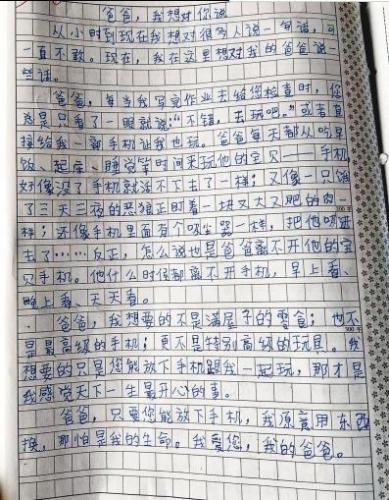 爸爸，我想对你说
从小时到现在我想对很多人说一句话，可
一直不敢。现在，我在这里想对我的爸爸说一
些话。
爸爸，每当我写完作业去给您检查时，你
总是只看了一眼就说：“不错，去玩吧。”或者直
接给我一部手机让我也玩。爸爸每天都从吃早
饭、起床、睡觉等时间来玩他的宝贝——手机，
好像没了手机就活不下去了一样；又像一只饿
了三天三夜的恶狼正盯着一块又大又肥的肉
一样；还像手机里面有个吸尘器一样，把他吸进
去了……反正，怎么说也是爸爸离不开他的宝
贝手机。他什么时候都离不开手机，早上看、
晚上看、天天看。
爸爸，我想要的不是满屋子的零食；也不
是最高级的手机；更不是特别高级的玩具。我
想要的只是您能放下手机跟我一起玩，那才是
我感觉天下一生最开心的事。
爸爸，只要您能放下手机，我原意用东西
换，那怕是我的生命。我爱您，我的爸爸。